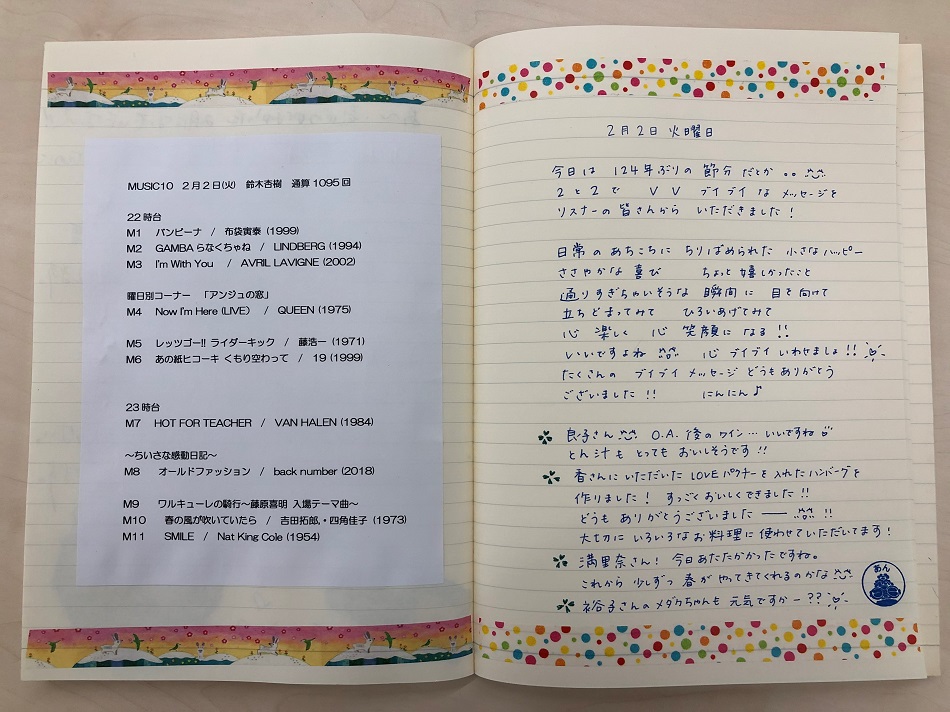 MUSIC10 2月2日(火) 鈴木杏樹 通算1095回
22時台
M1 バンビーナ / 布袋寅泰 (1999)
M2 GAMBAらなくちゃね / LINDBERG (1994)
M3 I'm With You / AVRIL LAVIGNE (2002)
曜日別コーナー 「アンジュの窓」
M4 Now I'm Here (LIVE) / QUEEN (1975)
M5 レッツゴー!! ライダーキック / 藤浩一 (1971)
M6 あの紙ヒコーキ くもり空わって / 19 (1999)
23時台
M7 HOT FOR TEACHER / VAN HALEN (1984)
～ちいさな感動日記～
M8 オールドファッション / back number (2018)
M9 ワルキューレの騎行～藤原喜明 入場テーマ曲～
M10 春の風が吹いていたら / 吉田拓郎,・四角佳子 (1973)
M11 SMILE / Nat King Cole (1954)
2月2日 火曜日
今日は 124年ぶりの 節分 だとか 。。
2と2で V V ブイブイ な メッセージを
リスナーの 皆さんから いただきました!
日常の あちこちに ちりばめられた 小さなハッピー
ささやかな 喜び ちょっと 嬉しかったこと
通りすぎちゃいそうな 瞬間に 目を向けて
立ちどまってみて ひろいあげてみて
心 楽しく 心 笑顔に なる!!
いいですよね 心 ブイブイ いわせましょ!!
たくさんの ブイブイ メッセージ どうもありがとう
ございました!! にんにん♪
良子さん O.A. 後の ワイン… いいですね
とん汁も とっても おいしそうです!!
香さんに いただいた LOVEパクチーを 入れた ハンバーグを
作りました! すっごく おいしく できました!!
どうも ありがとうございましたー !!
大切に いろいろな お料理に 使わせていただいてます!
満里奈さん! 今日 あたたかかったですね。
これから 少しずつ 春が やってきてくれるのかな
裕子さんの メダカちゃんも 元気ですかー??
あん